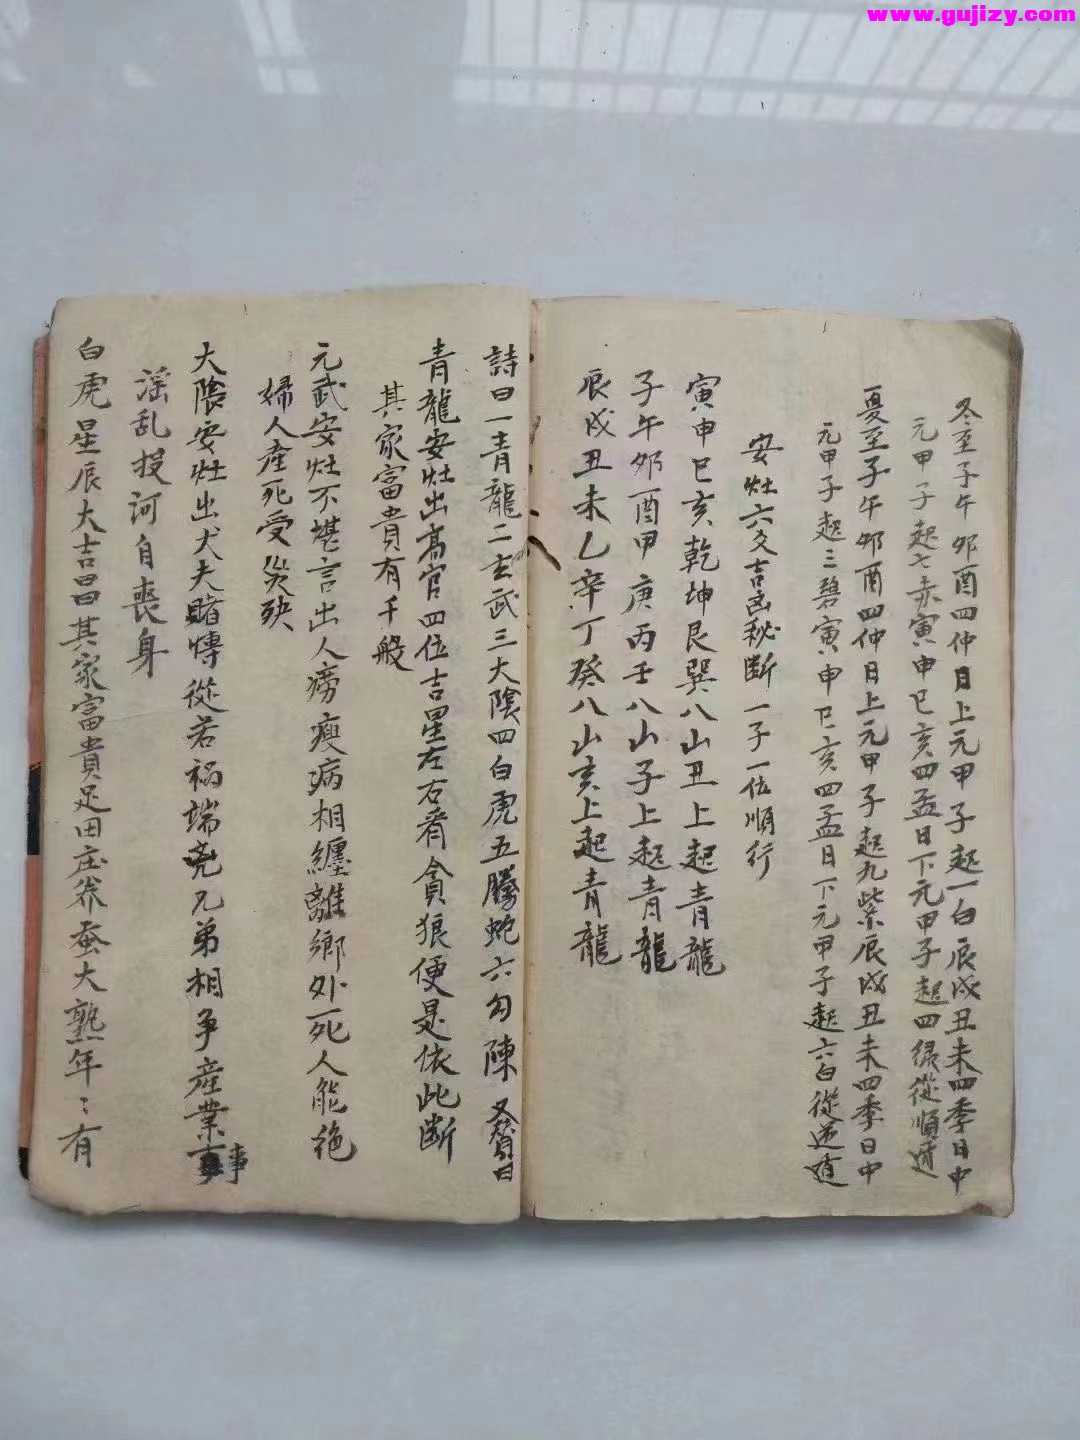 www.gujizy.com
冬至子午卯酉四仲日上元甲子起一白辰戌丑未四季日中
元甲子起七赤寅申巳亥四孟日下元甲子起四绿從順遁
夏至子午卯酉四仲日上元甲子起九紫辰戌丑未四季日中
元甲子起三碧寅申巳亥四孟日下元甲子起六白從逆遁
安灶六爻吉凶秘斷一子一位順行
寅申巳亥乾坤艮巽八山丑上起青龍
子午卯酉甲庚丙壬八山子上起青龍
辰戌丑未乙辛丁癸八山亥上起青龍
詩曰一青龍二玄武三大陰四白虎五螣蛇六勾陳 又贊曰
青龍安灶出高官四位吉星左右看貪狼便是依此斷
其家富貴有千般
元武安灶不堪言出人癆瘦病相纏離鄉外死人能絶
婦人產死受災殃
大陰安灶出犬夫賭慱從若禍端尭兄弟相争産業事
滛乱投河自喪身
白虎星辰大吉昌其家富貴足田庄养蚕大熟年〻有